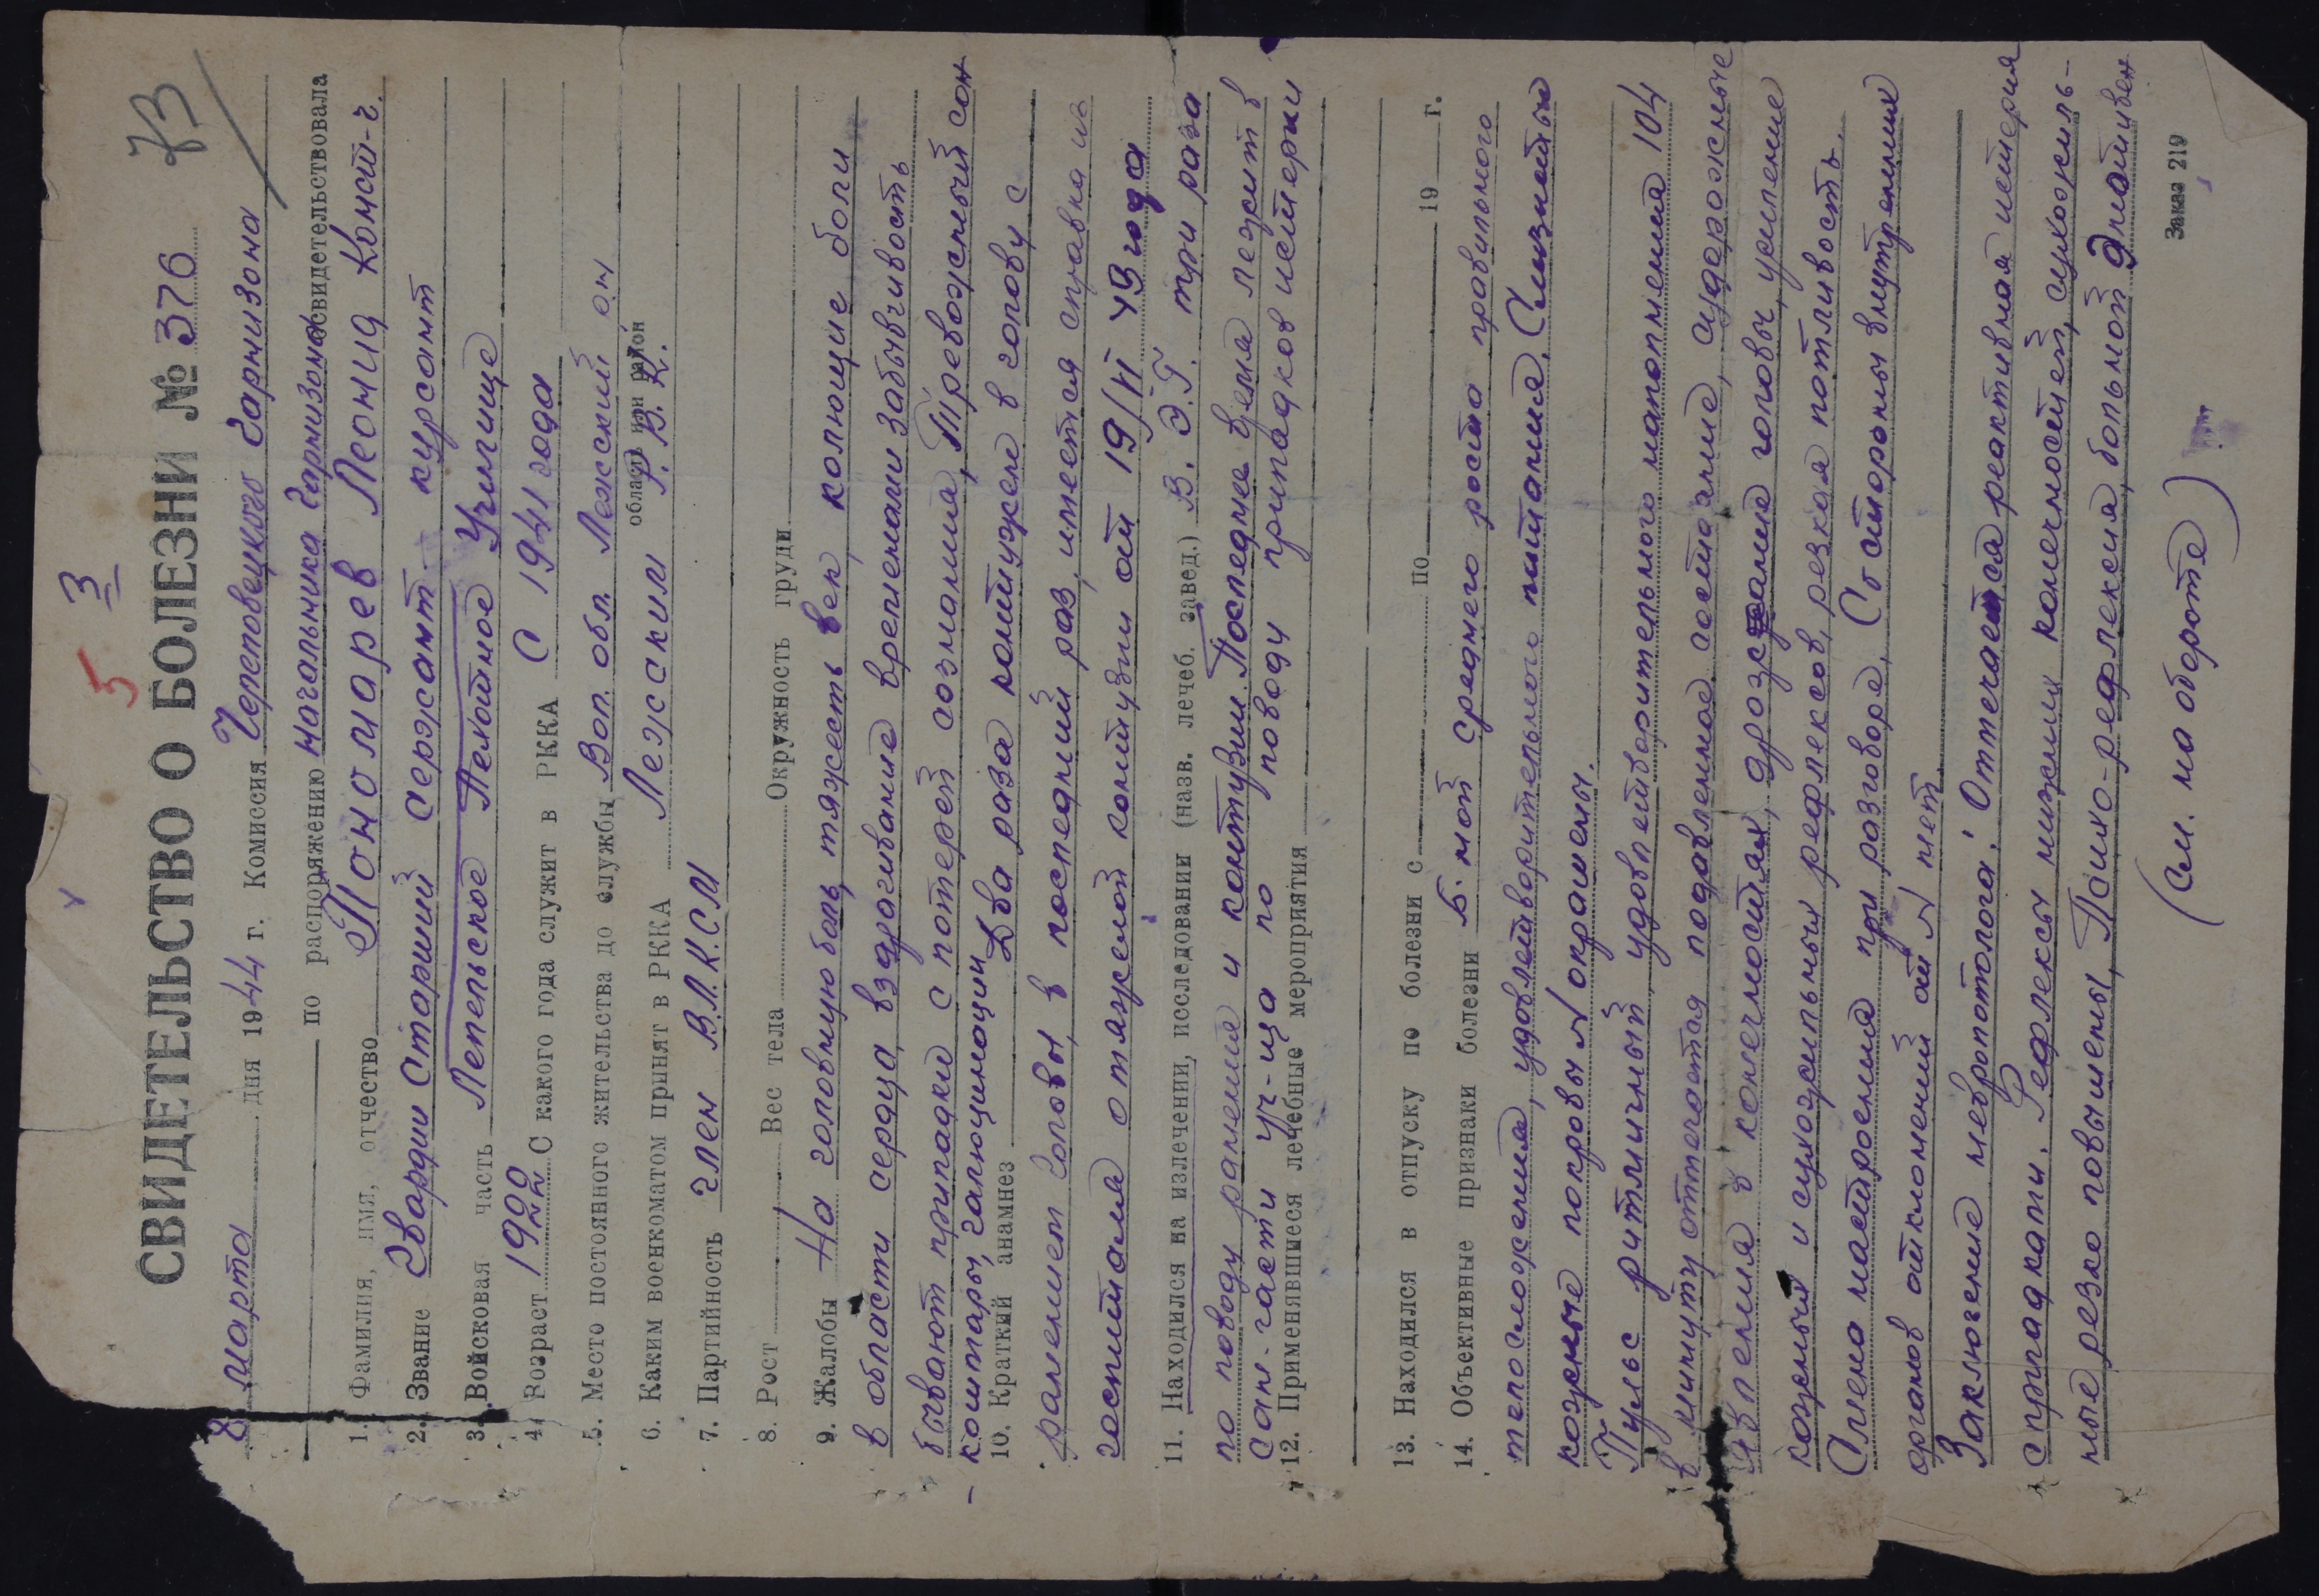 5 3
73
СВИДЕТЕЛЬСТВО О БОЛЕЗНИ № 376
8 марта дня 1944 г. Комиссия Череповецкого Гарнизона
по распоряжению Начальника Гарнизона освидетельствовала
1. Фамилия, имя, отчество Пономарев Леонид Конст-ч.
2. Звание Гвардии Старший сержант курсант
3. Войсковая часть Лепельское Пехотное Училище
4. Возраст 1922 С какого года служит в РККА С 1941 года
5. Место постоянного жительства до службы Вол. обл. Лежский
область или район
6. Каким военкоматом принят в РККА Лежским Р.В.К.
7. Партийность член В.Л.К.С.М
8. Рост Вес тела Окружность груди
9. Жалобы На головную боль, тяжесть век, колющие боли
в области сердца, вздрогивание временами забывчивость
бывают припадки с потерей сознания, Тревожный сон
- коштары, галюцинации
10. Краткий анамнез Два раза контужен в голову с
ранением головы, в последний раз, имеется справка из
госпиталя о тяжелой контузии от 19/VI 43 года
11. Находился на излечении, исследовании (назв. лечеб. завед.) В. Э.Г. три раза
по поводу ранения и контузии. Последнее время лежит в
сан-части уч-ща по поводу припадков истерки
12. Применявшиеся лечебные мероприятия
13. Находился в отпуску по болезни с по 19 г.
14. Объективные признаки болезни Б-ной среднего роста правильного
телосложения, удовлетворительного питания, Слизистые
кожные покровы N окрашены.
Пульс ритмичный удовлетворительного наполнения 104
в минуту отмечается подавленное состояние, судорожные
явления в конечностях, дрожание головы, усиление
кожных и сухожильных рефлексов, резкая потливость.
Слезо настроения при разговоре, Со стороны внутренних
органов отклонений от N нет
Заключение невропотолога: Отмечается реактивная истерия
с припадками. Рефлексы нижних конечностей, сухожиль-
ные резко повышены, Психо-рефлексия, больной Эмотивен
(см. на обороте)
Заказ 219